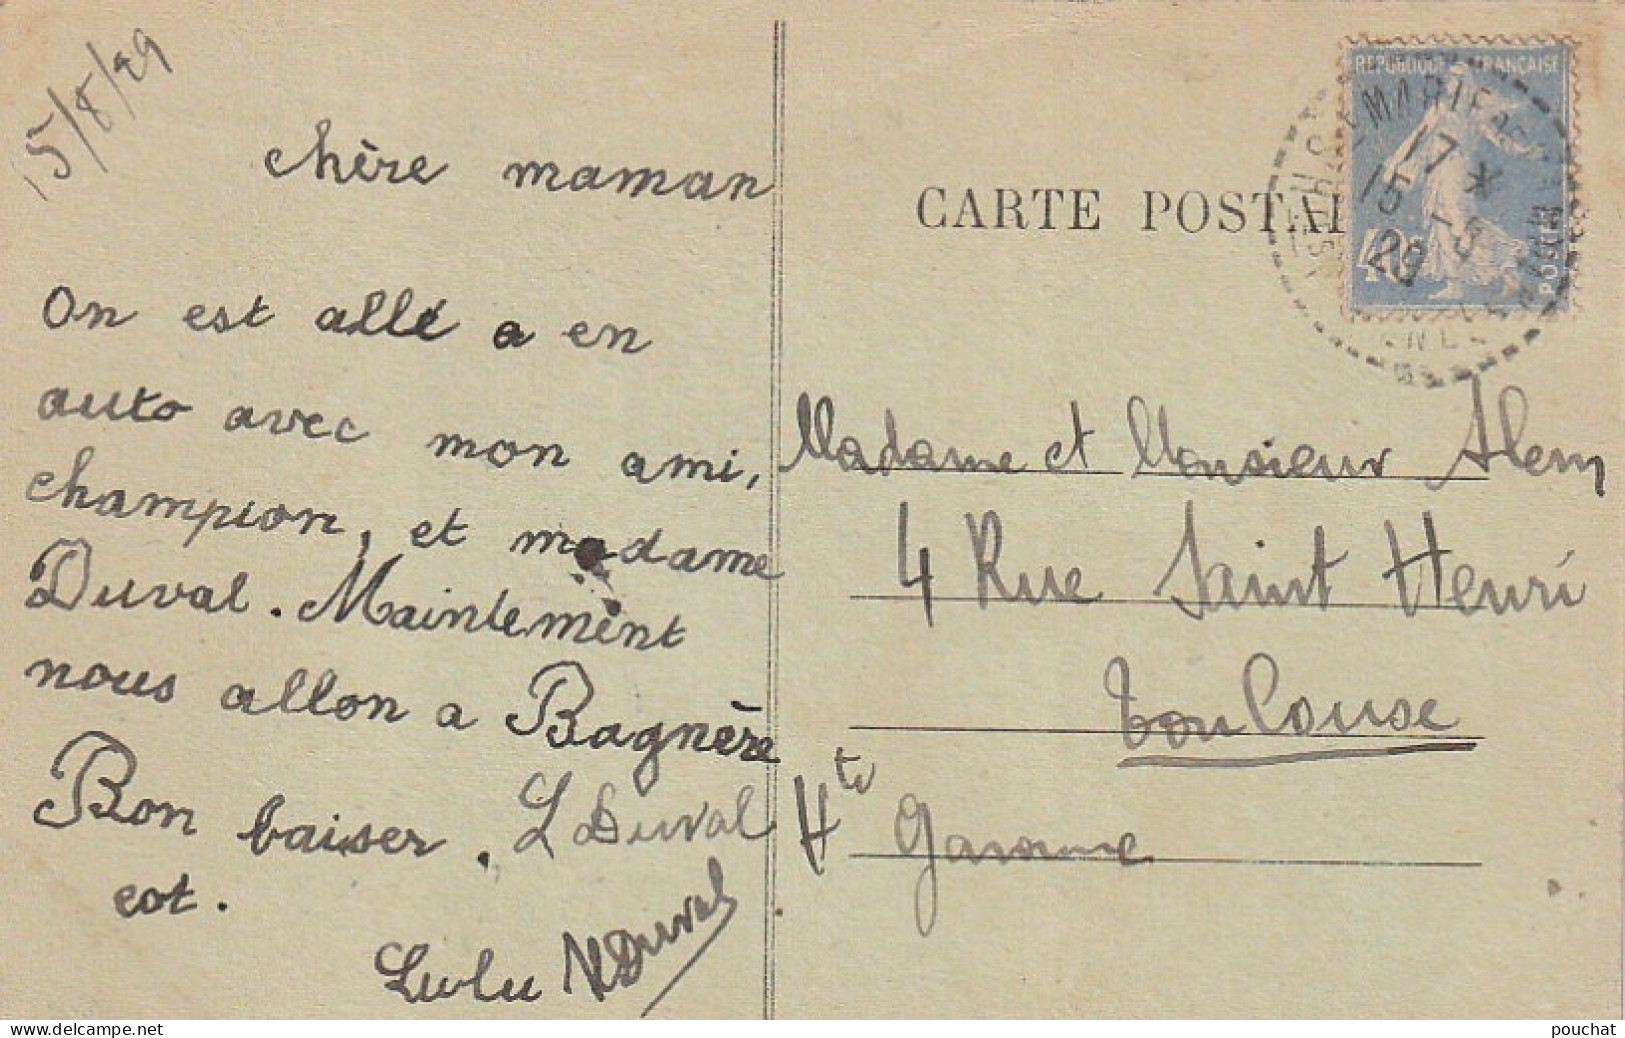 15/8/29
chère maman
On est allé a en
auto avec mon ami,
champion, et madame
Duval. Maintemènt
nous allon a Bagnère
Bon baiser. L Duval
Lulu Duval
CARTE POSTAL
REPUBLIQUE FRANÇAISE
40c
POSTES
MARIE
17
15 - 8
29
Madame et Monsieur Alem
4 Rue Saint Henri
Toulouse
Hte Garonne
www.delcampe.net
pouchat